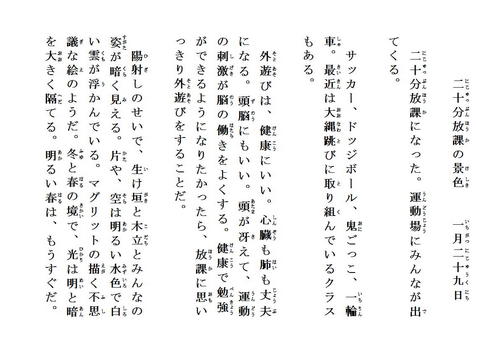 二十分放課の景色　　一月二十九日
二十分放課になった。運動場にみんなが出
てくる。
サッカー、ドッジボール、鬼ごっこ、一輪
車。最近は大縄跳びに取り組んでいるクラス
もある。
外遊びは、健康にいい。心臓も肺も丈夫
になる。頭脳にもいい。頭が冴えて、運動
の刺激が脳の働きをよくする。健康で勉強
ができるようになりたかったら、放課に思い
っきり外遊びをすることだ。
陽射しのせいで、生け垣と木立とみんなの
姿が暗く見える。片や、空は明るい水色で白
い雲が浮かんでいる。マグリットの描く不思
議な絵のようだ。冬と春の境で、光は明と暗
を大きく隔てる。明るい春は、もうすぐだ。